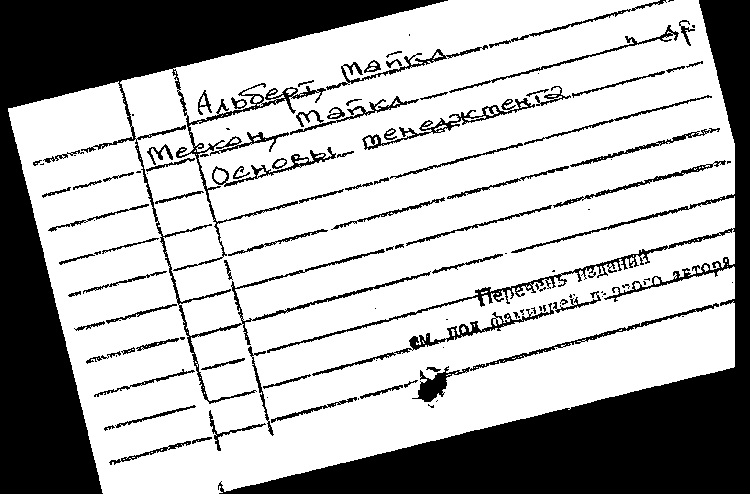 Альберт, Майкл
Мескон, Майкл
Основы менеджмента
Перечень изданий
см. под фамилией первого автора